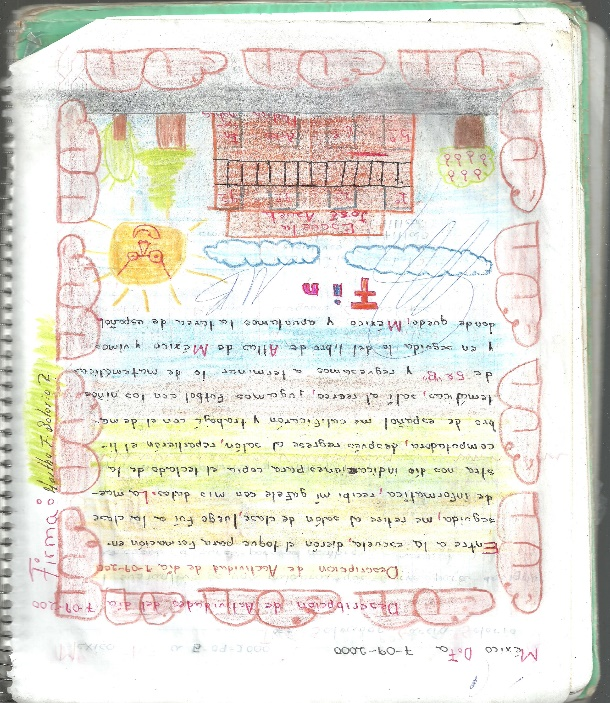 México D.F.a 7-09-2000
Descripción de Actividades del día 7-09-200
Descripción de Actividad de día 7-09-200
Entre a la escuela, dierón el toque para formación en-
seguida, me retire al salón de clase, luego fui a la clase
de informatica, recibi mi gafete con mis datos. La mae-
stra nos dio indicaciones para copia el teclado de la
computadora, después regrese al salón, repartierón el li-
bro de español me calificarón y trabajé con el de ma-
temáticas, salí al recreo, jugamos futbol con los niños
de 5º "B" y regresamos a terminar lo de matemáticas
y en seguida lo del libro de Atlas de México y vimos
donde quedo; México y apuntamos la tarea de español
Fin
Escuela
José
Firma: